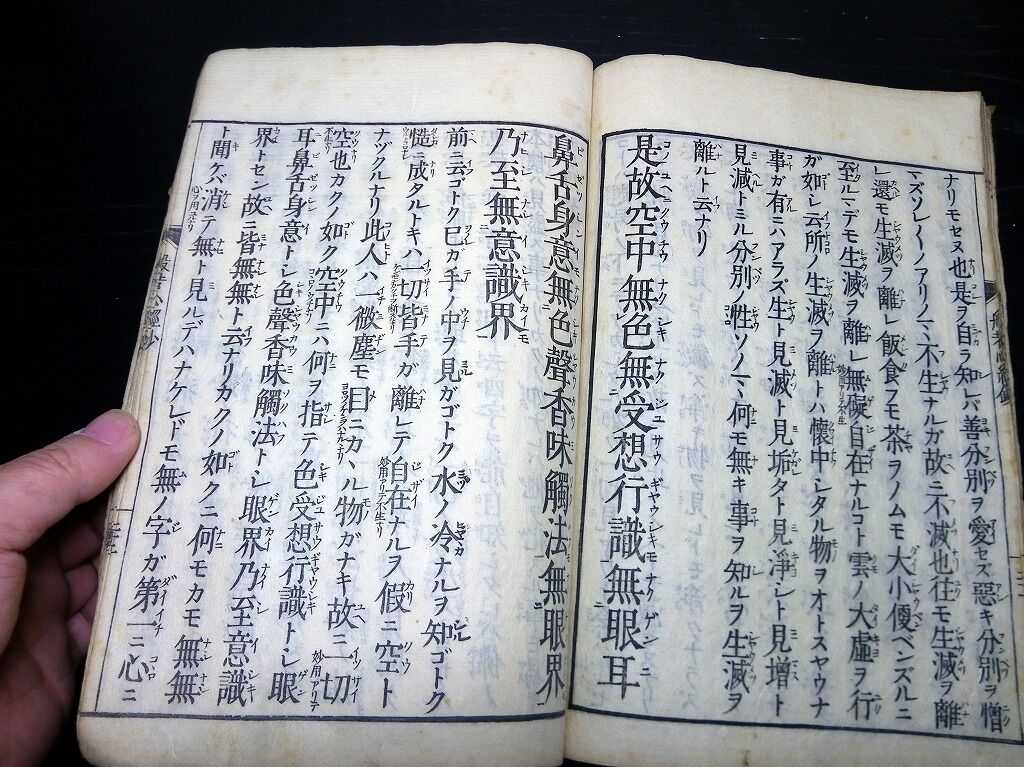 ナリモセヌ也是ヲ自ラ知レバ善分別ヲ愛セズ惡キ分別ヲ憎
マズソレ〱ノアリノマヽ不生ナルガ故ニ不滅也往モ生滅ヲ離
レ還モ生滅ヲ離レ飯食フモ茶ヲノムモ大小便ベンズルニ
至ルマデモ生滅ヲ離レ無礙自在ナルコト雲ノ大虛ヲ行
ガ如レ云所ノ生滅ヲ離トハ懷中シタル物ヲオトスヤウナ
事ガ有ニハアラズ生ト見滅ト見垢タト見淨シト見增ト
見減トミル分別ノ性ソノマヽ何モ無キ事ヲ知ルヲ生滅ヲ
離ルト云ナリ
是故空中無色無受想行識無眼耳
鼻舌身意無色聲香味觸法無眼界
乃至無意識界
前ニ云ゴトク巳ガ手ノ中ヲ見ガゴトク水ノ冷ナルヲ知ゴトク
慥ニ成タルトキハ一切皆手ガ離レテ自在ナルヲ假ニ空ト
ナヅクルナリ此人ハ一微塵モ目ニカヽル物ガナキ故ニ一切
空也カクノ如ク空中ニハ何ヲ指テ色受想行識トシ眼
耳鼻舌身意トシ色聲香味觸法トシ眼界乃至意識
界トセン故ニ皆無無ト云ナリカクノ如クニ何モカモ無無
ト聞ケバ消テ無ト見ルデハナケレドモ無ノ字ガ第一ニ心ニ